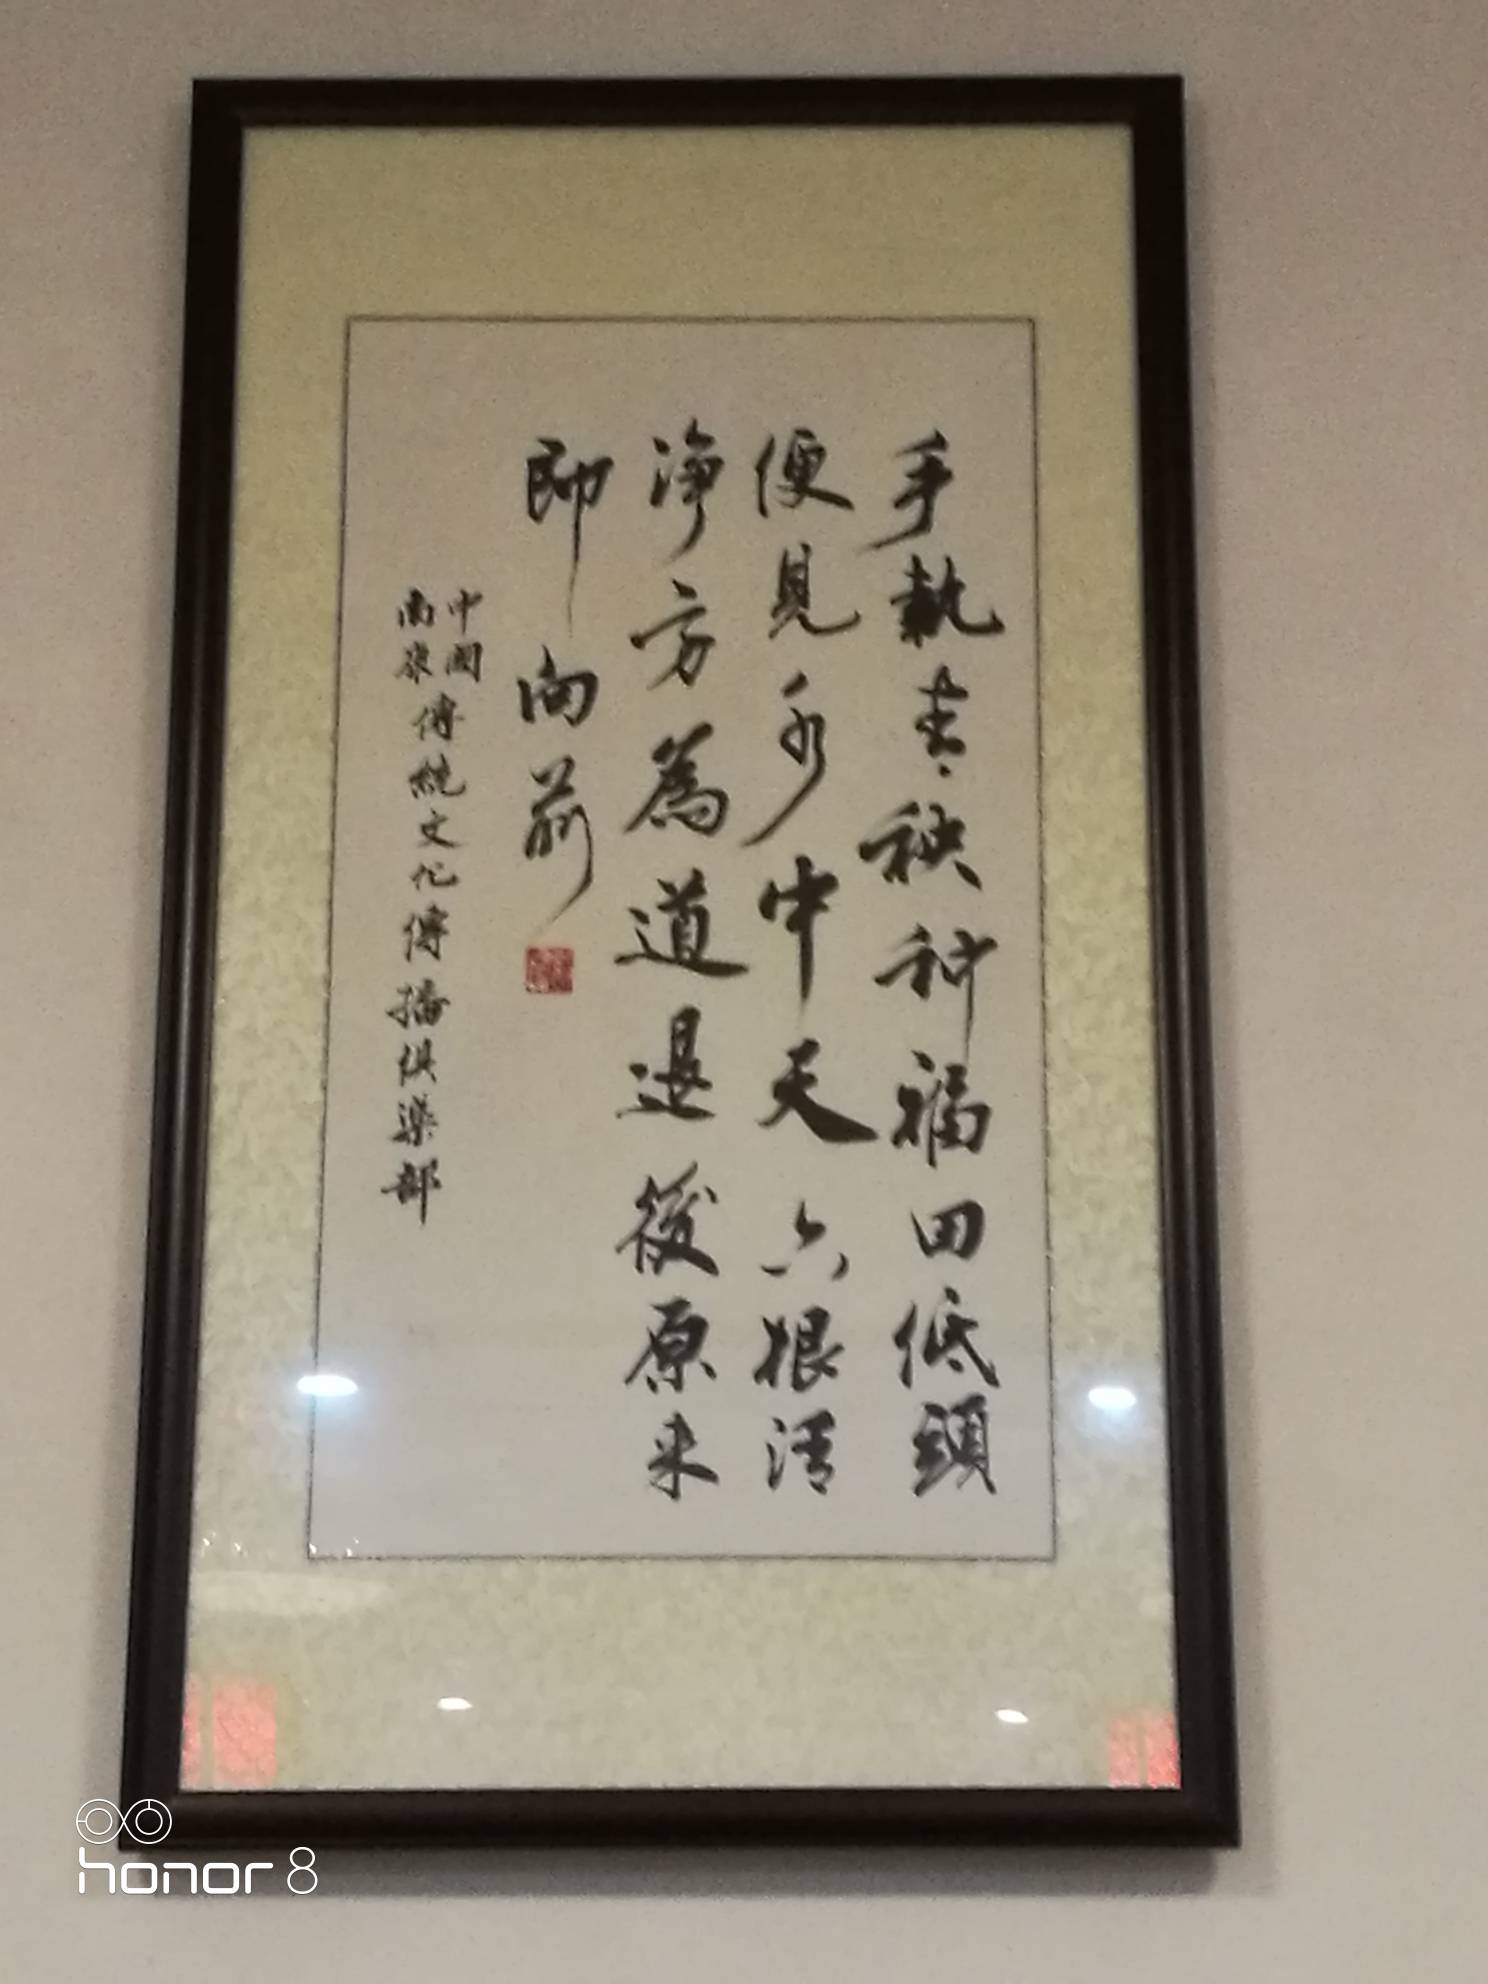 手執青秧种福田低頭
便見水中天六根清
淨方為道退後原来
即向前
中國
南康
傳統文化傳播俱樂部
honor 8